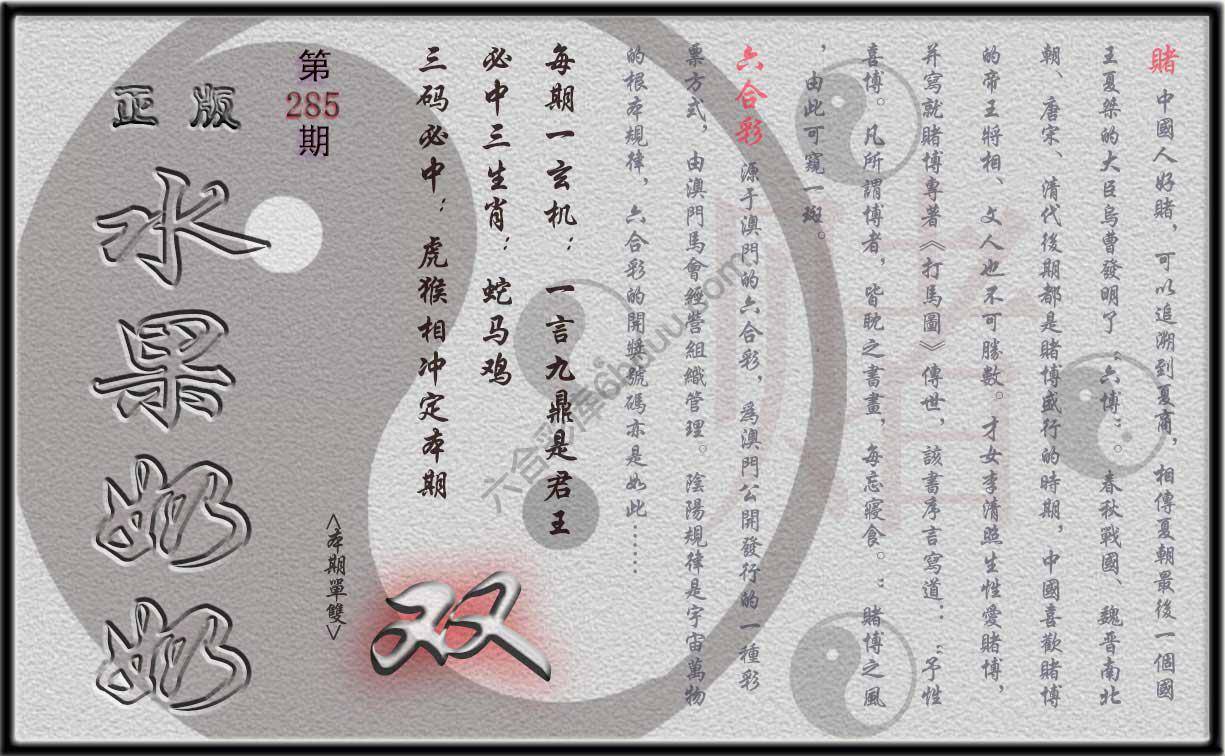 賭 中國人好賭，可以追溯到夏商，相傳夏朝最後一個國
王夏桀的大臣烏曹發明了“六博”。春秋戰國、魏晋南北
朝、唐宋、清代後期都是賭博盛行的時期，中國喜歡賭博
的帝王將相、文人也不可勝數。才女李清照生性愛賭博，
并寫就賭博專著《打馬圖》傳世，該書序言寫道：“予性
喜博。凡所謂博者，皆眈之書畫，每忘寢食。”賭博之風
，由此可窺一斑。
六合彩 源于澳門的六合彩，為澳門公開發行的一種彩
票方式，由澳門馬會經營組織管理。陰陽規律是宇宙萬物
的根本規律，六合彩的開獎號碼亦是如此……
每期一玄机：一言九鼎是君王
必中三生肖：蛇马鸡
三码必中：虎猴相冲定本期
<本期單雙>
双
第
285
期
正版
水果奶奶
賭
六合彩库6hduu.com